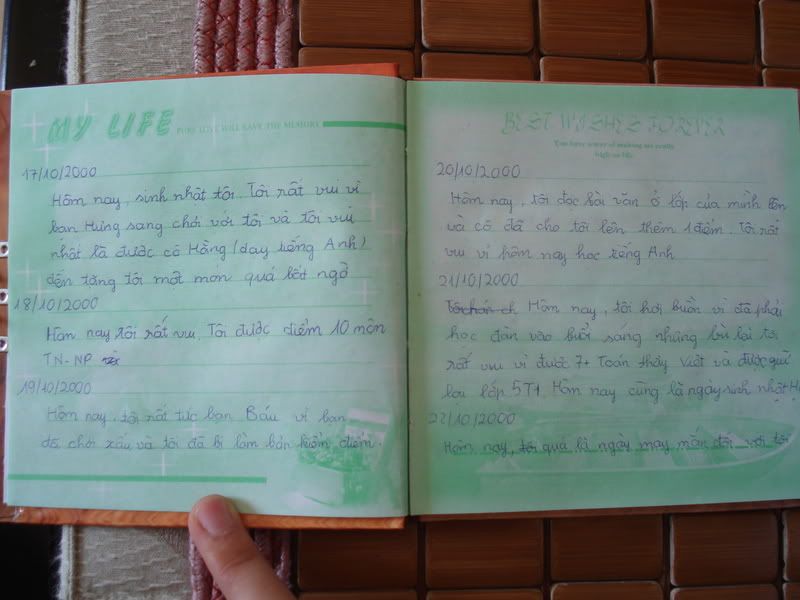 MY LIFE
PURE LOVE WILL SAVE THE MEMORY
17/10/2000
Hôm nay, sinh nhật tôi. Tôi rất vui vì
bạn Hưng sang chơi với tôi và tôi vui
nhất là được cô Hằng (dạy tiếng Anh)
đến tặng tôi một món quà bất ngờ
18/10/2000
Hôm nay tôi rất vui, Tôi được điểm 10 môn
TN-NP
19/10/2000
Hôm nay, tôi rất tức bạn Báu vì bạn
đã chơi xấu và tôi đã bị làm bản kiểm điểm.
BEST WISHES FOREVER
You have ways of making me really
high on life
20/10/2000
Hôm nay, tôi đọc bài văn ở lớp của mình
và cô đã cho tôi lên thêm 1 điểm. Tôi rất
vui vì hôm nay học tiếng Anh
21/10/2000
Hôm nay, tôi hơi buồn vì đã phải
học đàn vào buổi sáng nhưng bù lại tôi
rất vui vì được 7+ Toán thầy Việt và được
lau lớp 5T1. Hôm nay cũng là ngày sinh nhật
22/10/2000
Hôm nay, tôi quả là ngày may mắn đối với tôi